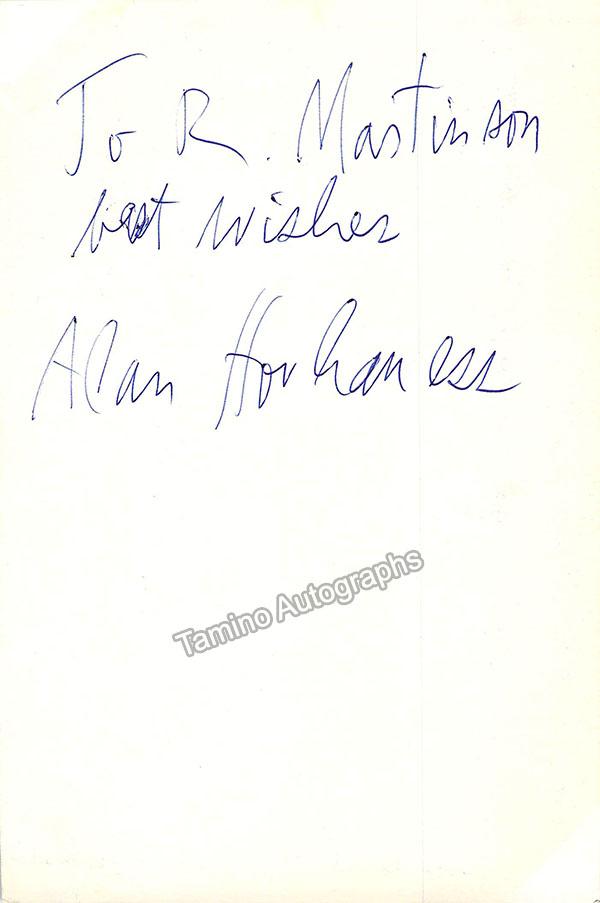 To R. Mastinson
best wishes
Alan Hovhaness
Tamino Autographs